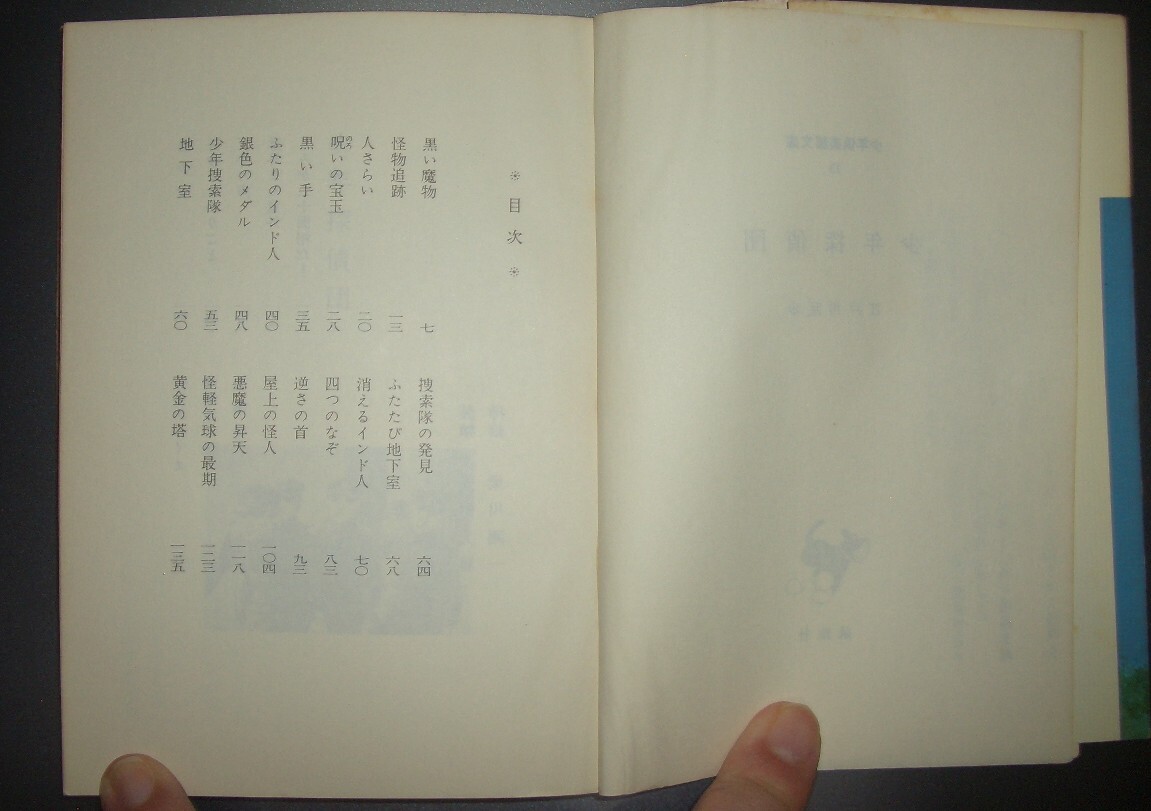 ＊目次＊
黒い魔物 七
怪物追跡 一三
人さらい 二〇
呪いの宝玉 二八
のろ
黒い手 三五
ふたりのインド人 四〇
銀色のメダル 四八
少年捜索隊 五三
地下室 六〇
捜索隊の発見 六四
ふたたび地下室 六八
消えるインド人 七〇
四つのなぞ 八三
逆さの首 九三
屋上の怪人 一〇四
悪魔の昇天 一一八
怪軽気球の最期 一二三
黄金の塔 一三五
少年探偵団